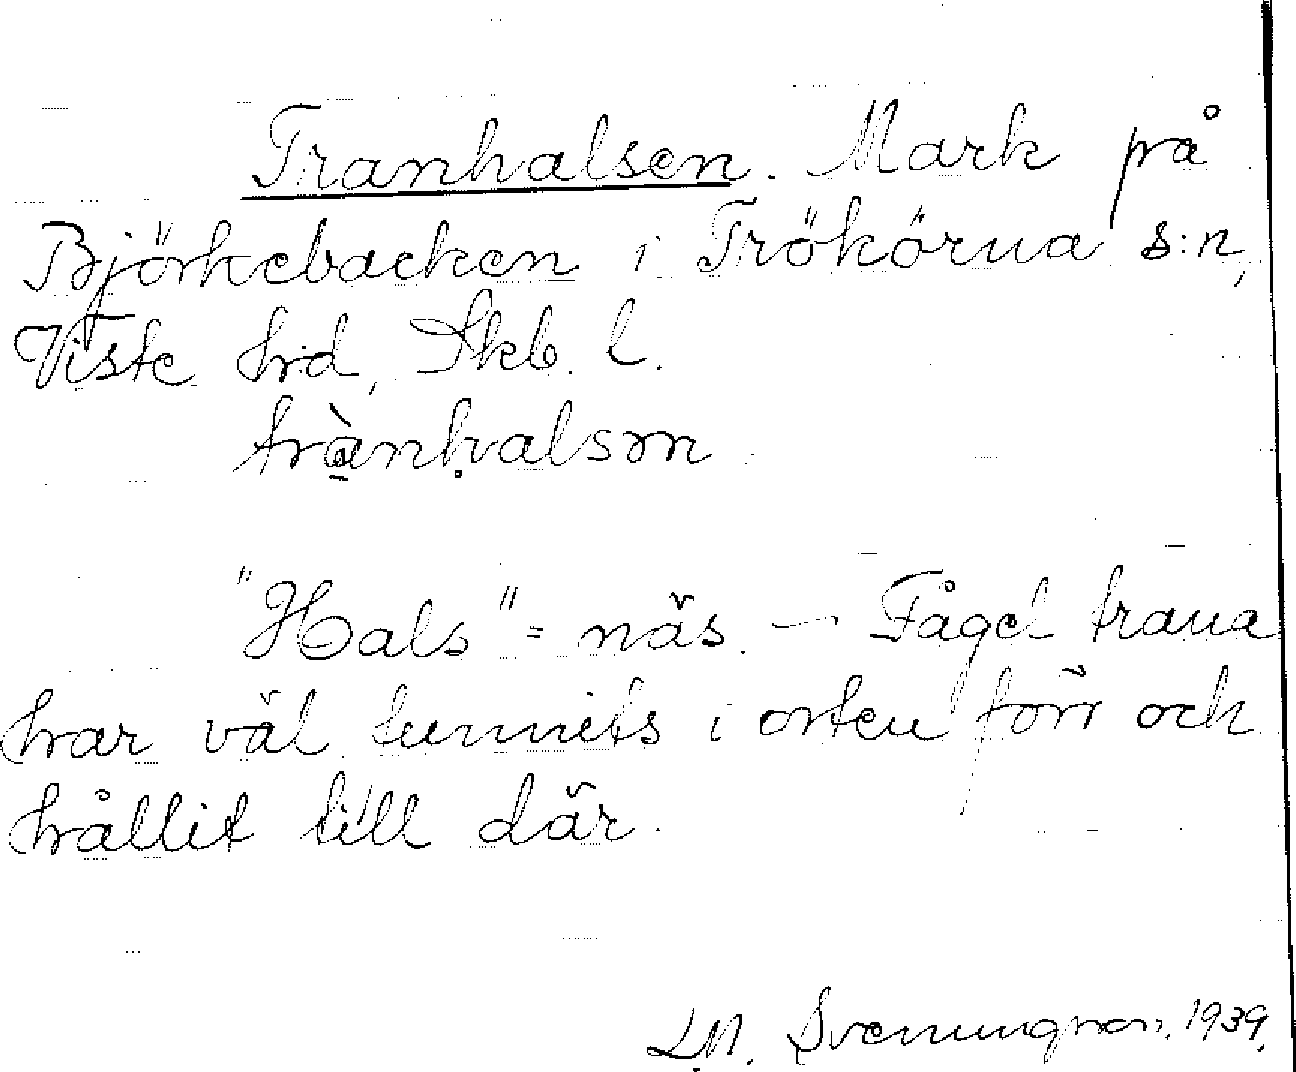 Tranhalsen. Mark på
Björkebacken i Trökörna s:n,
Viste hd, Skb. l.
trànhalsən
"Hals" = näs. — Fågel trana
har väl funnits i orten förr och
hållit till där.
L.M. Svenungsson, 1939.